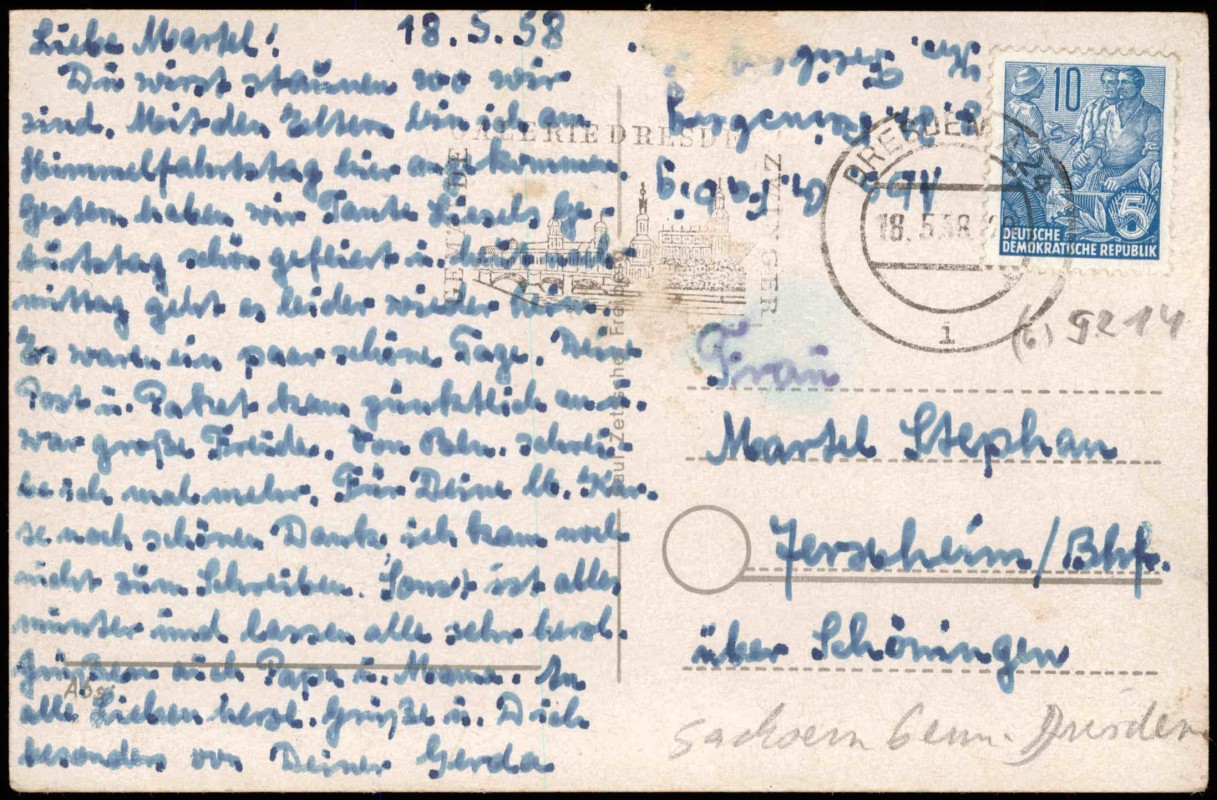 18.5.58
Liebe Martel!
Du wirst staunen wo wir
sind. Mit den Eltern bin ich am
Himmelfahrtstag hier angekommen.
Gestern haben wir Tante Liesels Ge-
burtstag schön gefeiert u. heut
mittag geht es leider wieder heim.
Es waren ein paar schöne Tage. Deine
Post u. Paket kam pünktlich an u.
war große Freude. Von Bln. schrei-
be ich mal mehr. Für Deine lb. Kar-
te noch schönen Dank, ich kam noch
nicht zum Schreiben. Sonst ist alles
munter und lassen alle sehr herzl.
grüßen auch Papa u. Mama. An
alle Lieben herzl. Grüße u. Dich
besonders von Deiner Gerda
Abs. G.
GEMÄLDE
GALERIE DRESDEN
ZWINGER
DRESDEN A 24
18.5.58
i
10
5
DEUTSCHE
DEMOKRATISCHE REPUBLIK
(b) 9214
Frau
Martel Stephan
Jerxheim/Bhf.
über Schöningen
Sachsen Gem. Dresden
Abs.